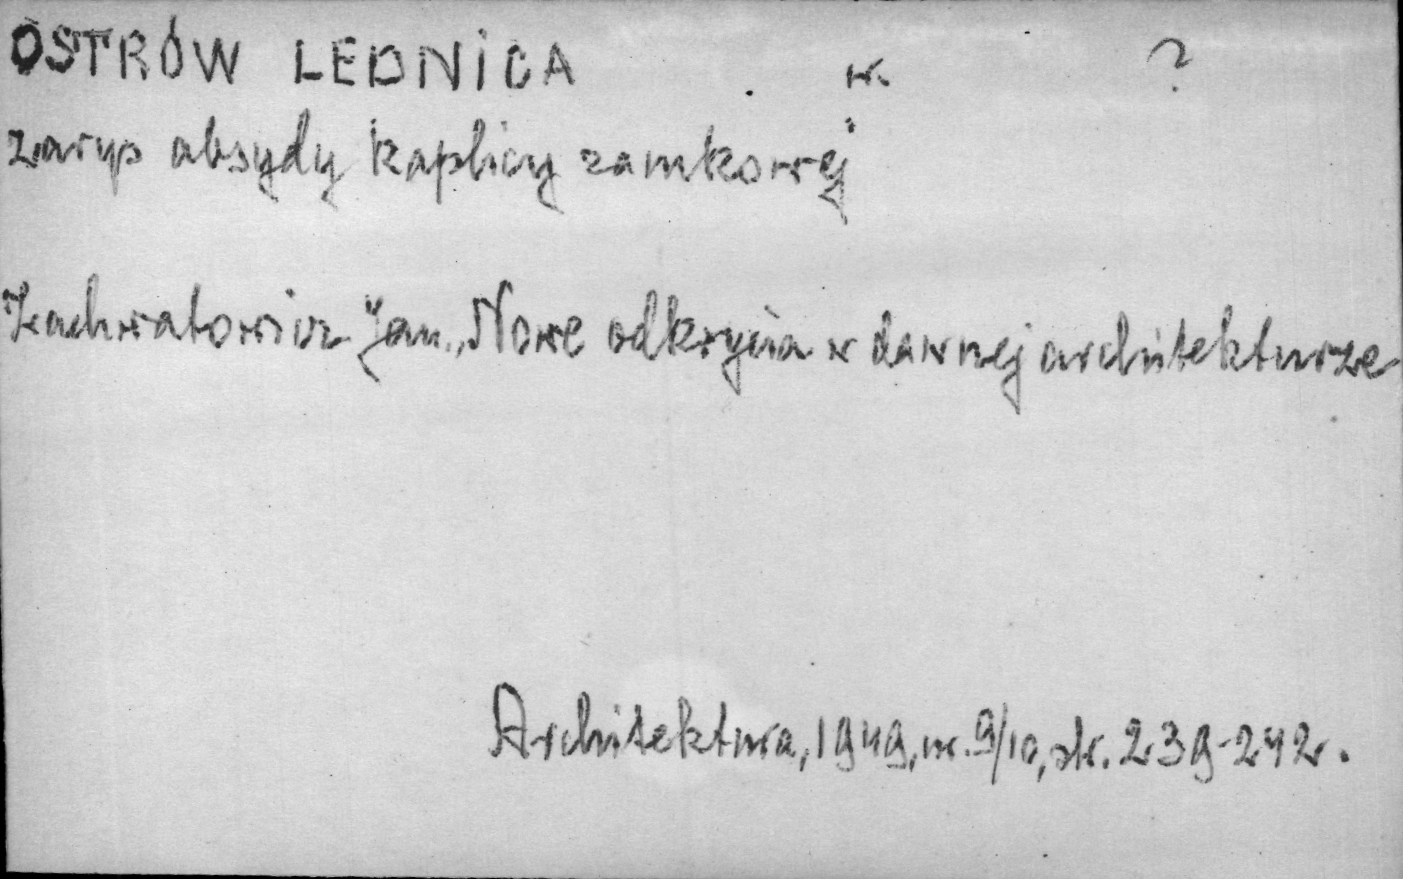 OSTRÓW LEDNICA w. ?
zarys absydy kaplicy zamkowej
Zachwatowicz Jan., Nowe odkrycia w dawnej architekturze
Architektura, 1949, nr. 9/10, str. 239-242.